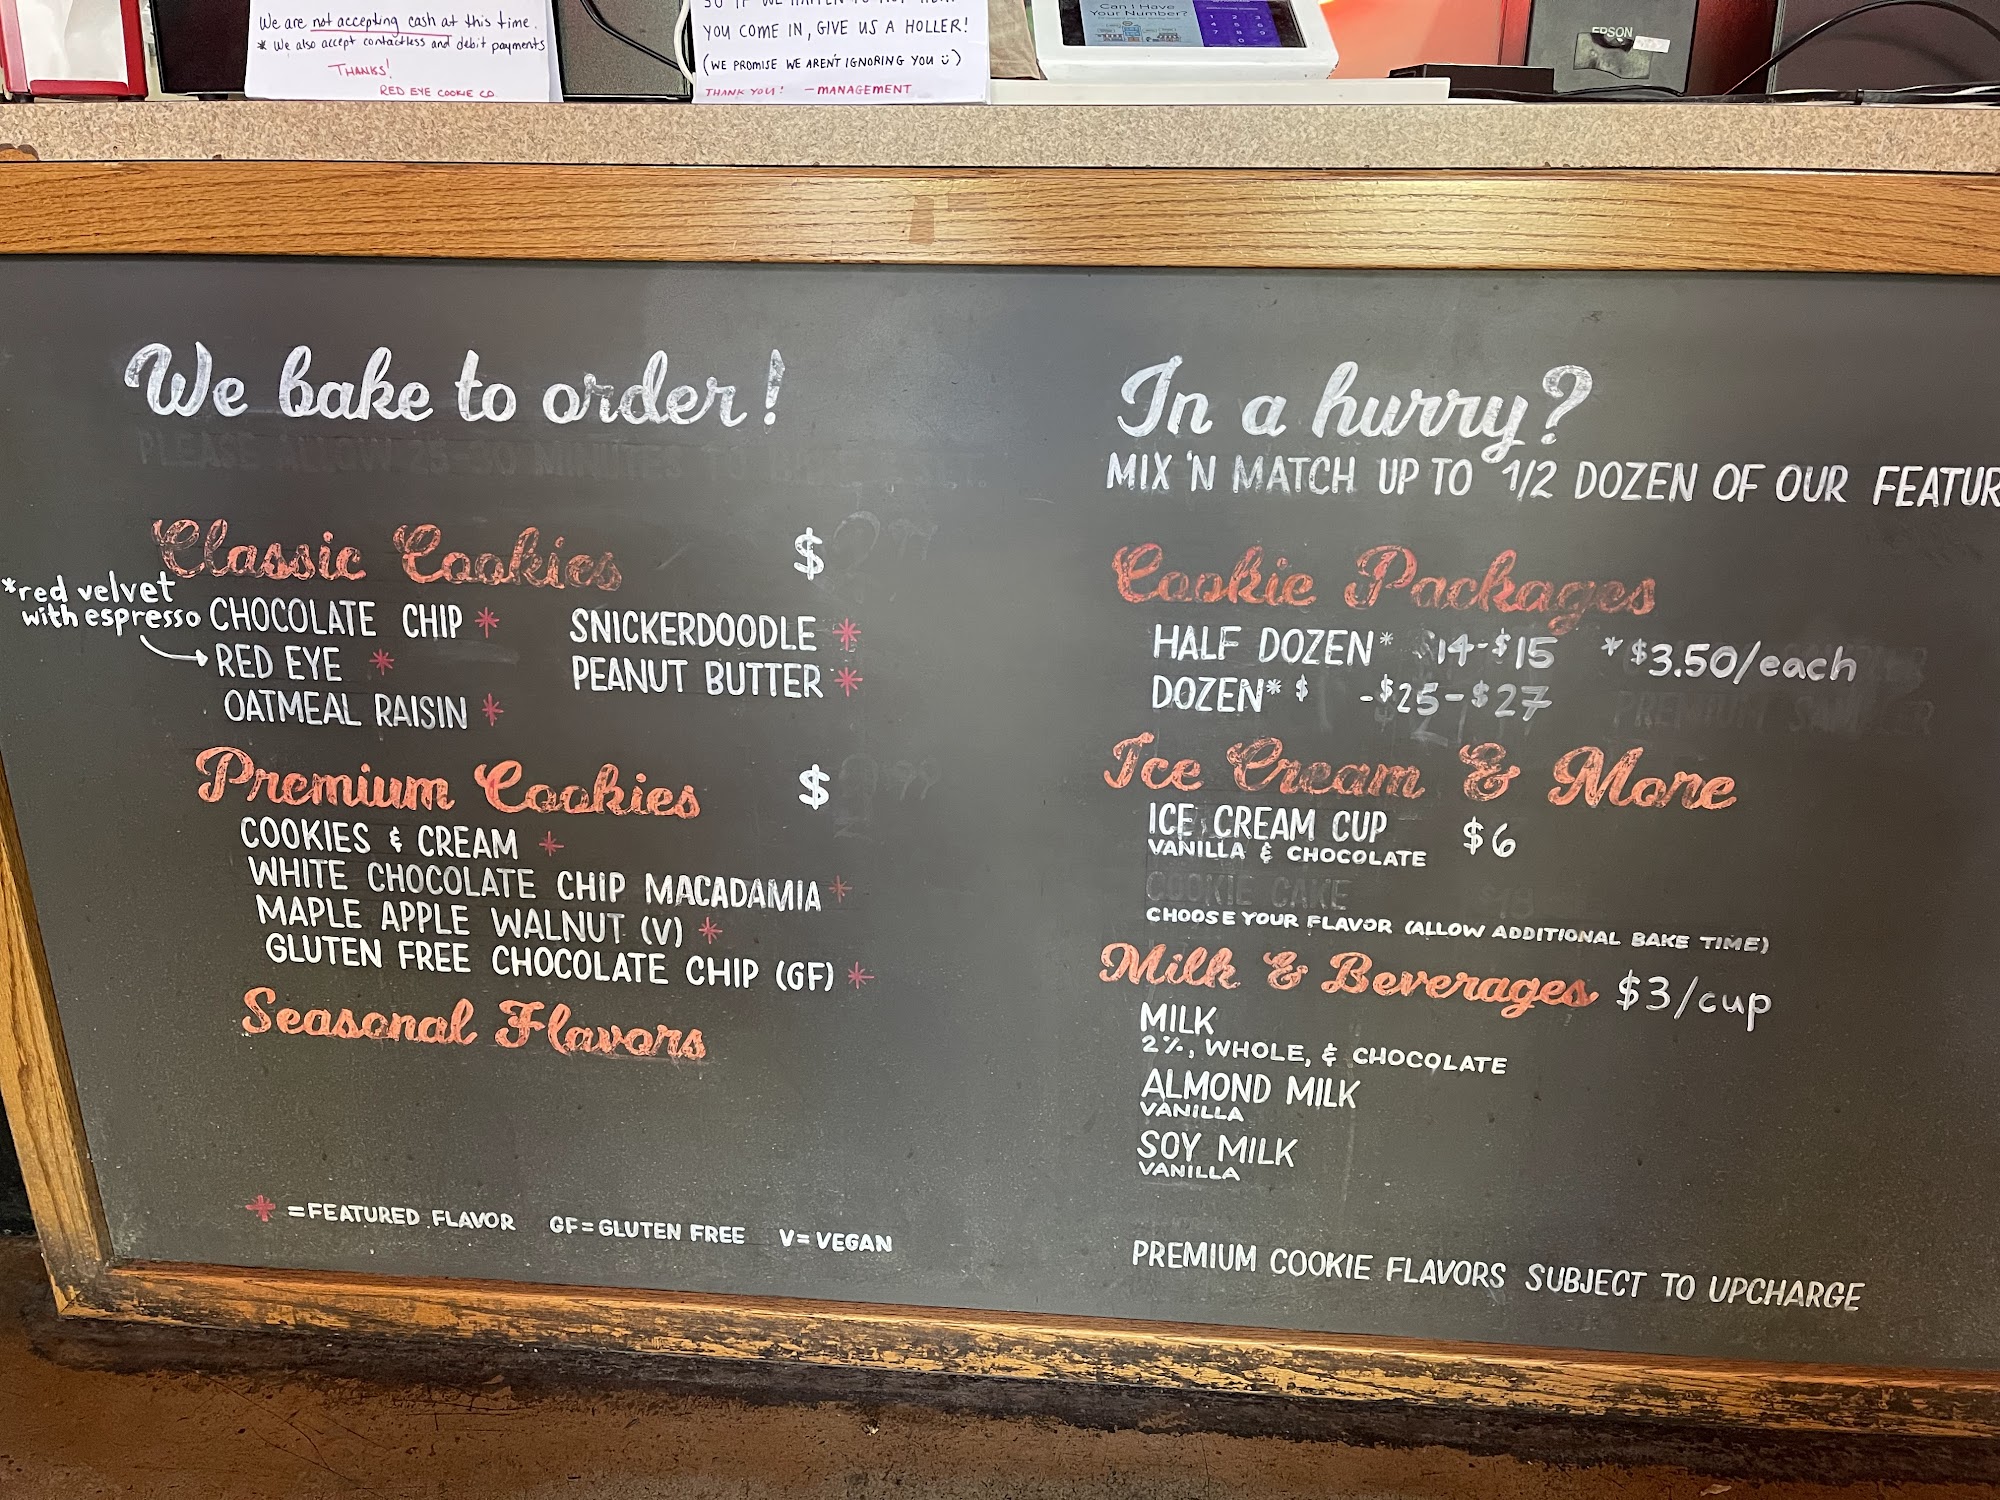 We are not accepting cash at this time.
* We also accept contactless and debit payments
THANKS!
RED EYE COOKIE CO.
YOU COME IN, GIVE US A HOLLER!
(WE PROMISE WE AREN'T IGNORING YOU ü)
THANK YOU! - MANAGEMENT
Can I Have
Your Number?
EPSON
We bake to order!
PLEASE ALLOW 25-30 MINUTES
Classic Cookies $
*red velvet
with espresso
CHOCOLATE CHIP *
RED EYE *
OATMEAL RAISIN *
SNICKERDOODLE *
PEANUT BUTTER *
Premium Cookies $
COOKIES & CREAM *
WHITE CHOCOLATE CHIP MACADAMIA *
MAPLE APPLE WALNUT (V) *
GLUTEN FREE CHOCOLATE CHIP (GF) *
Seasonal Flavors
* = FEATURED FLAVOR GF = GLUTEN FREE V = VEGAN
In a hurry?
MIX 'N MATCH UP TO 1/2 DOZEN OF OUR FEATUR
Cookie Packages
HALF DOZEN* $14-$15 *$3.50/each
DOZEN* $ -$25-$27
PREMIUM SAMPLER
Ice Cream & More
ICE CREAM CUP $6
VANILLA & CHOCOLATE
COOKIE CAKE
CHOOSE YOUR FLAVOR (ALLOW ADDITIONAL BAKE TIME)
Milk & Beverages $3/cup
MILK
2%, WHOLE, & CHOCOLATE
ALMOND MILK
VANILLA
SOY MILK
VANILLA
PREMIUM COOKIE FLAVORS SUBJECT TO UPCHARGE